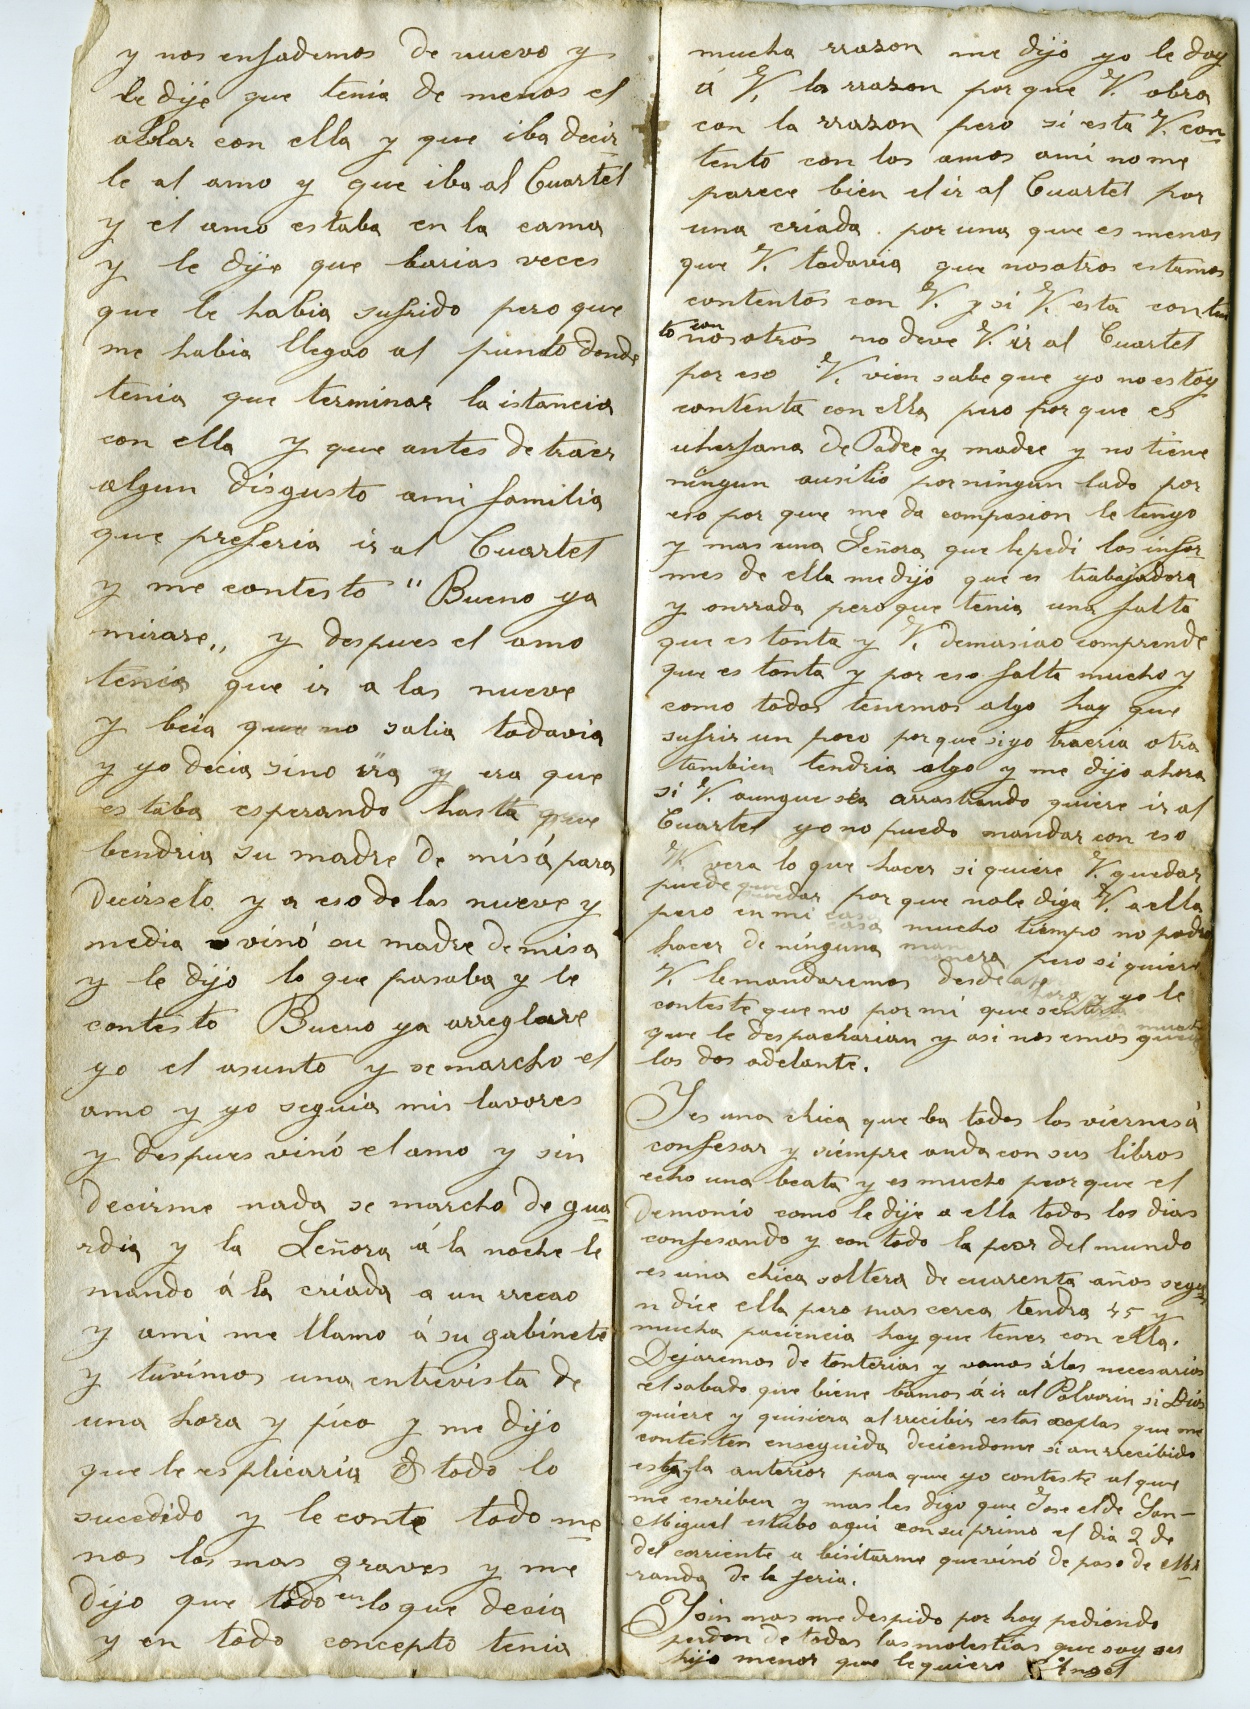 y nos enfademos de nuevo y
le dije que tenia de menos el
ablar con ella y que iba decir
le al amo y que iba al Cuartel
y el amo estaba en la cama
y le dije que barias veces
que le habia sufrido pero que
me habia llegao al punto donde
tenia que terminar la istancia
con ella y que antes de traer
algun disgusto ami familia
que preferia ir al Cuartel
y me contesto "Bueno ya
mirare„ y despues el amo
tenia que ir a las nueve
y beia que no salia todavia
y yo decia sino ira y era que
estaba esperando hasta que
bendria su madre de misá para
decirselo y a eso de las nueve y
media vinó su madre de misa
y le dijo lo que pasaba y le
contesto Bueno ya arreglare
yo el asunto y se marcho el
amo y yo seguia mis lavores
y despues vinó el amo y sin
decirme nada se marcho de gua
rdia y la Señora á la noche le
mando á la criada a un rrecao
y ami me llamo á su gabinete
y tuvimos una entrevista de
una hora y pico y me dijo
que le esplicaria todo lo
sucedido y le conte todo me
nos las mas graves y me
dijo que todo en lo que decia
y en todo concepto tenia
mucha rrason me dijo yo le doy
á V. la rrason porque V. obra
con la rrason pero si esta V. con
tento con los amos ami no me
parece bien el ir al Cuartel por
una criada por una que es menos
que V. todavia que nosotros estamos
contentos con V. y si V. esta conten
to con nosotros no deve V. ir al Cuartel
por eso V. vien sabe que yo no estoy
contenta con ella pero por que es
uherfana de Padre y madre y no tiene
ningun ausilio por ningun lado por
eso por que me da compasion le tengo
y mas una Señora que le pedi los infor
mes de ella me dijo que es trabajadora
y onrrada pero que tenia una falta
que es tonta y V. demasiao comprende
que es tonta y por eso falta mucho y
como todos tenemos algo hay que
sufrir un poco porque si yo traeria otra
tambien tendria algo y me dijo ahora
si V. aunque sea arrastrando quiere ir al
Cuartel yo no puedo mandar con eso
V. vera lo que hacer si quiere V. quedar
puede quedar por que no le diga V. a ella
pero en mi casa mucho tiempo no podra
hacer de ninguna manera pero si quiere
V. le mandaremos desde ahora y yo le
conteste que no por mi que sentiria mucho
que le despacharian y asi nos emos quedao
los dos adelante.
Y es una chica que ba todos los viernes á
confesar y siempre anda con sus libros
echo una beata y es mucho peor que el
demonio como le dije a ella todos los dias
confesando y con todo la peor del mundo
es una chica soltera de cuarenta años segu
n dice ella pero mas cerca tendra 45 y
mucha paciencia hay que tener con ella.
Dejaremos de tonterias y vamos á los necesarios
el sabado que biene bamos á ir al Polvorin si Dios
quiere y quisiera al rrecibir estas coplas que me
contesten enseguida deciendome si an rrecibido
esta y la anterior para que yo conteste al que
me escriben y mas les digo que Jose el de San-
Miguel estubo aqui con su primo el dia 2 de
del corriente a bisitarme que vinó de paso de Mi
randa de la feria.
Y sin mas me despido por hoy pediendo
perdon de todas las molestias que soy su
hijo menor que le quiere Angel